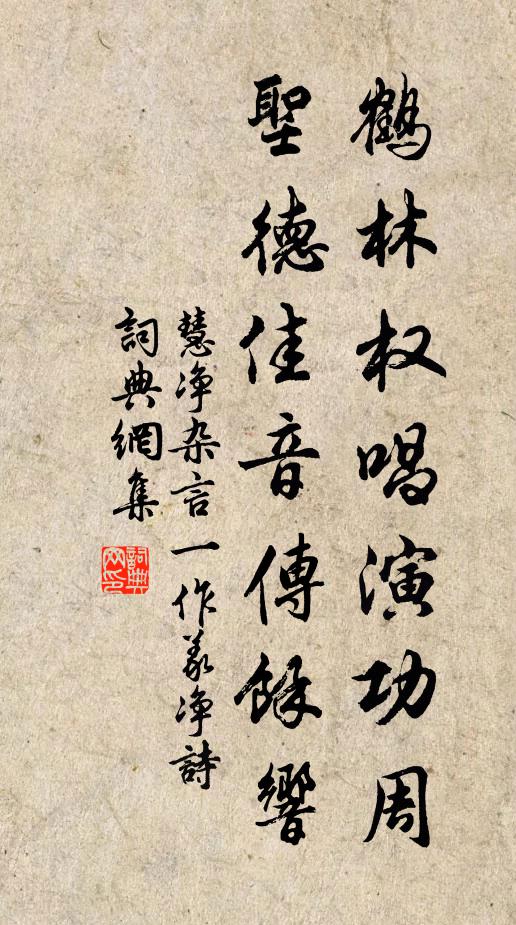 鶴林权唱演功周
聖德佳音傳餘響
慧净杂言一作義净詩
詞典網集
詞典網印